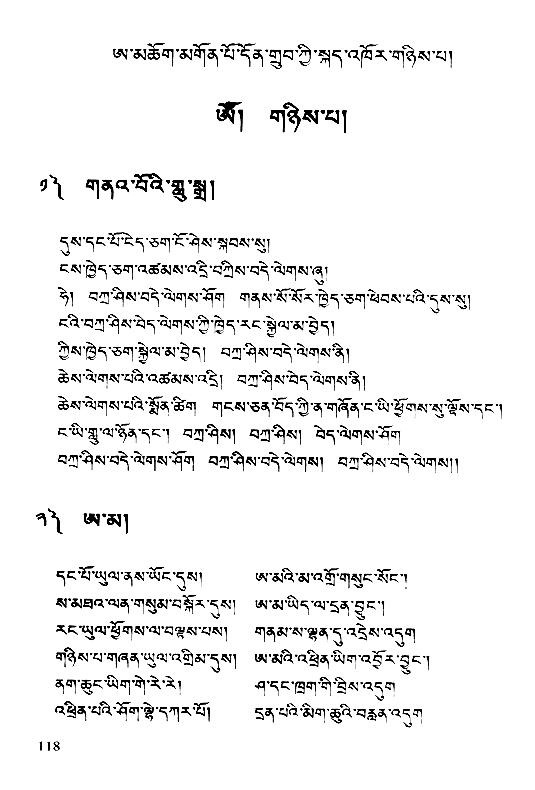 ཨ་མཆོག་མགོན་པོ་དོན་གྲུབ་ཀྱི་སྐད་འཁོར་གཉིས་པ།
ཨོཾ། གཉིས་པ།
༡༽ གནའ་བོའི་གླུ་སྒྲ།
དུས་དང་པོ་ངེད་ཅག་ངོ་ཤེས་སྐབས་སུ།
ངས་ཁྱེད་ཅག་འཚམས་འདྲི་བཀྲིས་བདེ་ལེགས་ཞུ།
ཧེ། བཀྲ་ཤིས་བདེ་ལེགས་ཤོག གནས་སོ་སོར་ཁྱེད་ཅག་ཕེབས་པའི་དུས་སུ།
ངའི་བཀྲ་ཤིས་བདེ་ལེགས་ཀྱི་ཁྱེད་རང་སྐྱེལ་མ་བྱེད།
ཀྱིས་ཁྱེད་ཅག་སྐྱེལ་མ་བྱེད། བཀྲ་ཤིས་བདེ་ལེགས་ནི།
ཆེས་ལེགས་པའི་འཚམས་འདྲི། བཀྲ་ཤིས་བདེ་ལེགས་ནི།
ཆེས་ལེགས་པའི་སྨོན་ཚིག གངས་ཅན་བོད་ཀྱི་ན་གཞོན་ང་ཡི་ཕྱོགས་སུ་ལྟོས་དང་།
ང་ཡི་གླུ་ལ་ཉོན་དང་། བཀྲ་ཤིས། བཀྲ་ཤིས། བདེ་ལེགས་ཤོག
བཀྲ་ཤིས་བདེ་ལེགས་ཤོག བཀྲ་ཤིས་བདེ་ལེགས། བཀྲ་ཤིས་བདེ་ལེགས།།
༢༽ ཨ་མ།
དང་པོ་ཡུལ་ནས་ཡོང་དུས། ཨ་མའི་མ་འགྲོ་གསུང་སོང་།
ས་མཐའ་ལན་གསུམ་བསྐོར་དུས། ཨ་མ་ཡིད་ལ་དྲན་བྱུང་།
རང་ཡུལ་ཕྱོགས་ལ་བལྟས་པས། གནམ་ས་ལྷན་དུ་འདྲེས་འདུག
གཉིས་པ་གཞན་ཡུལ་འགྲིམ་དུས། ཨ་མའི་འཕྲིན་ཡིག་འབྱོར་བྱུང་།
ནག་ཆུང་ཡིག་གེ་རེ་རེ། ཤ་དང་ཁྲག་གི་བྲིས་འདུག
འཕྲིན་པའི་ཤོག་ལྷེ་དཀར་པོ། དྲན་པའི་མིག་ཆུའི་བརླན་འདུག
118